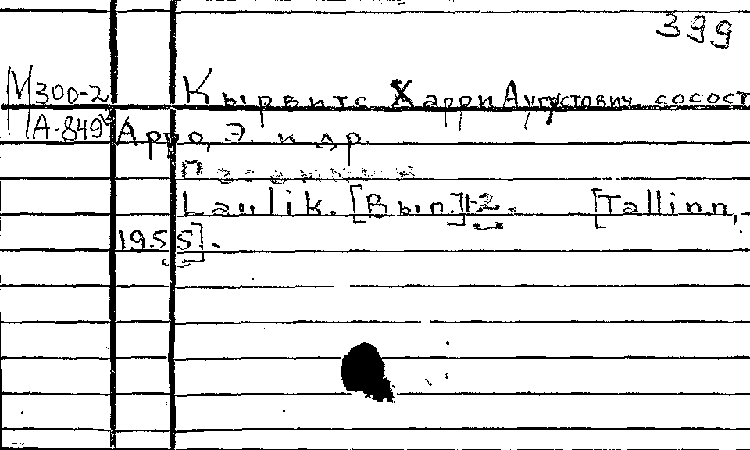 399
М300-2 Кырвитс Харри Аугустович, сосост
А-849 Арро, Э. и др.
Песенник
Laulik. [Вып.] 1-2. [Tallinn,
1955].